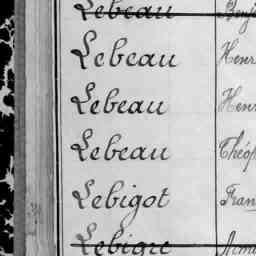 Lebeau Benj
Lebeau Henr
Lebeau Henr
Lebeau Théop
Lebigot Fran
Lebigre